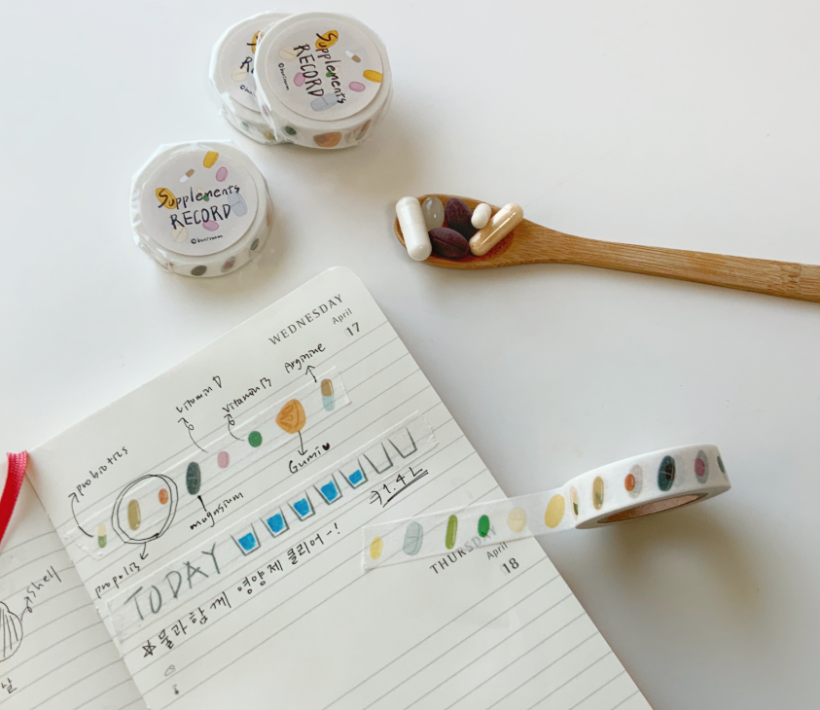 Supplements
RECORD
Supplements
RECORD
WEDNESDAY
April
17
Arginine
vitamin D
vitamin B
probiotics
Gumi♥
magnesium
propolis
→1.4L
TODAY
☆물과 함께 영양제 클리어~!
THURSDAY
April
18
shell
날